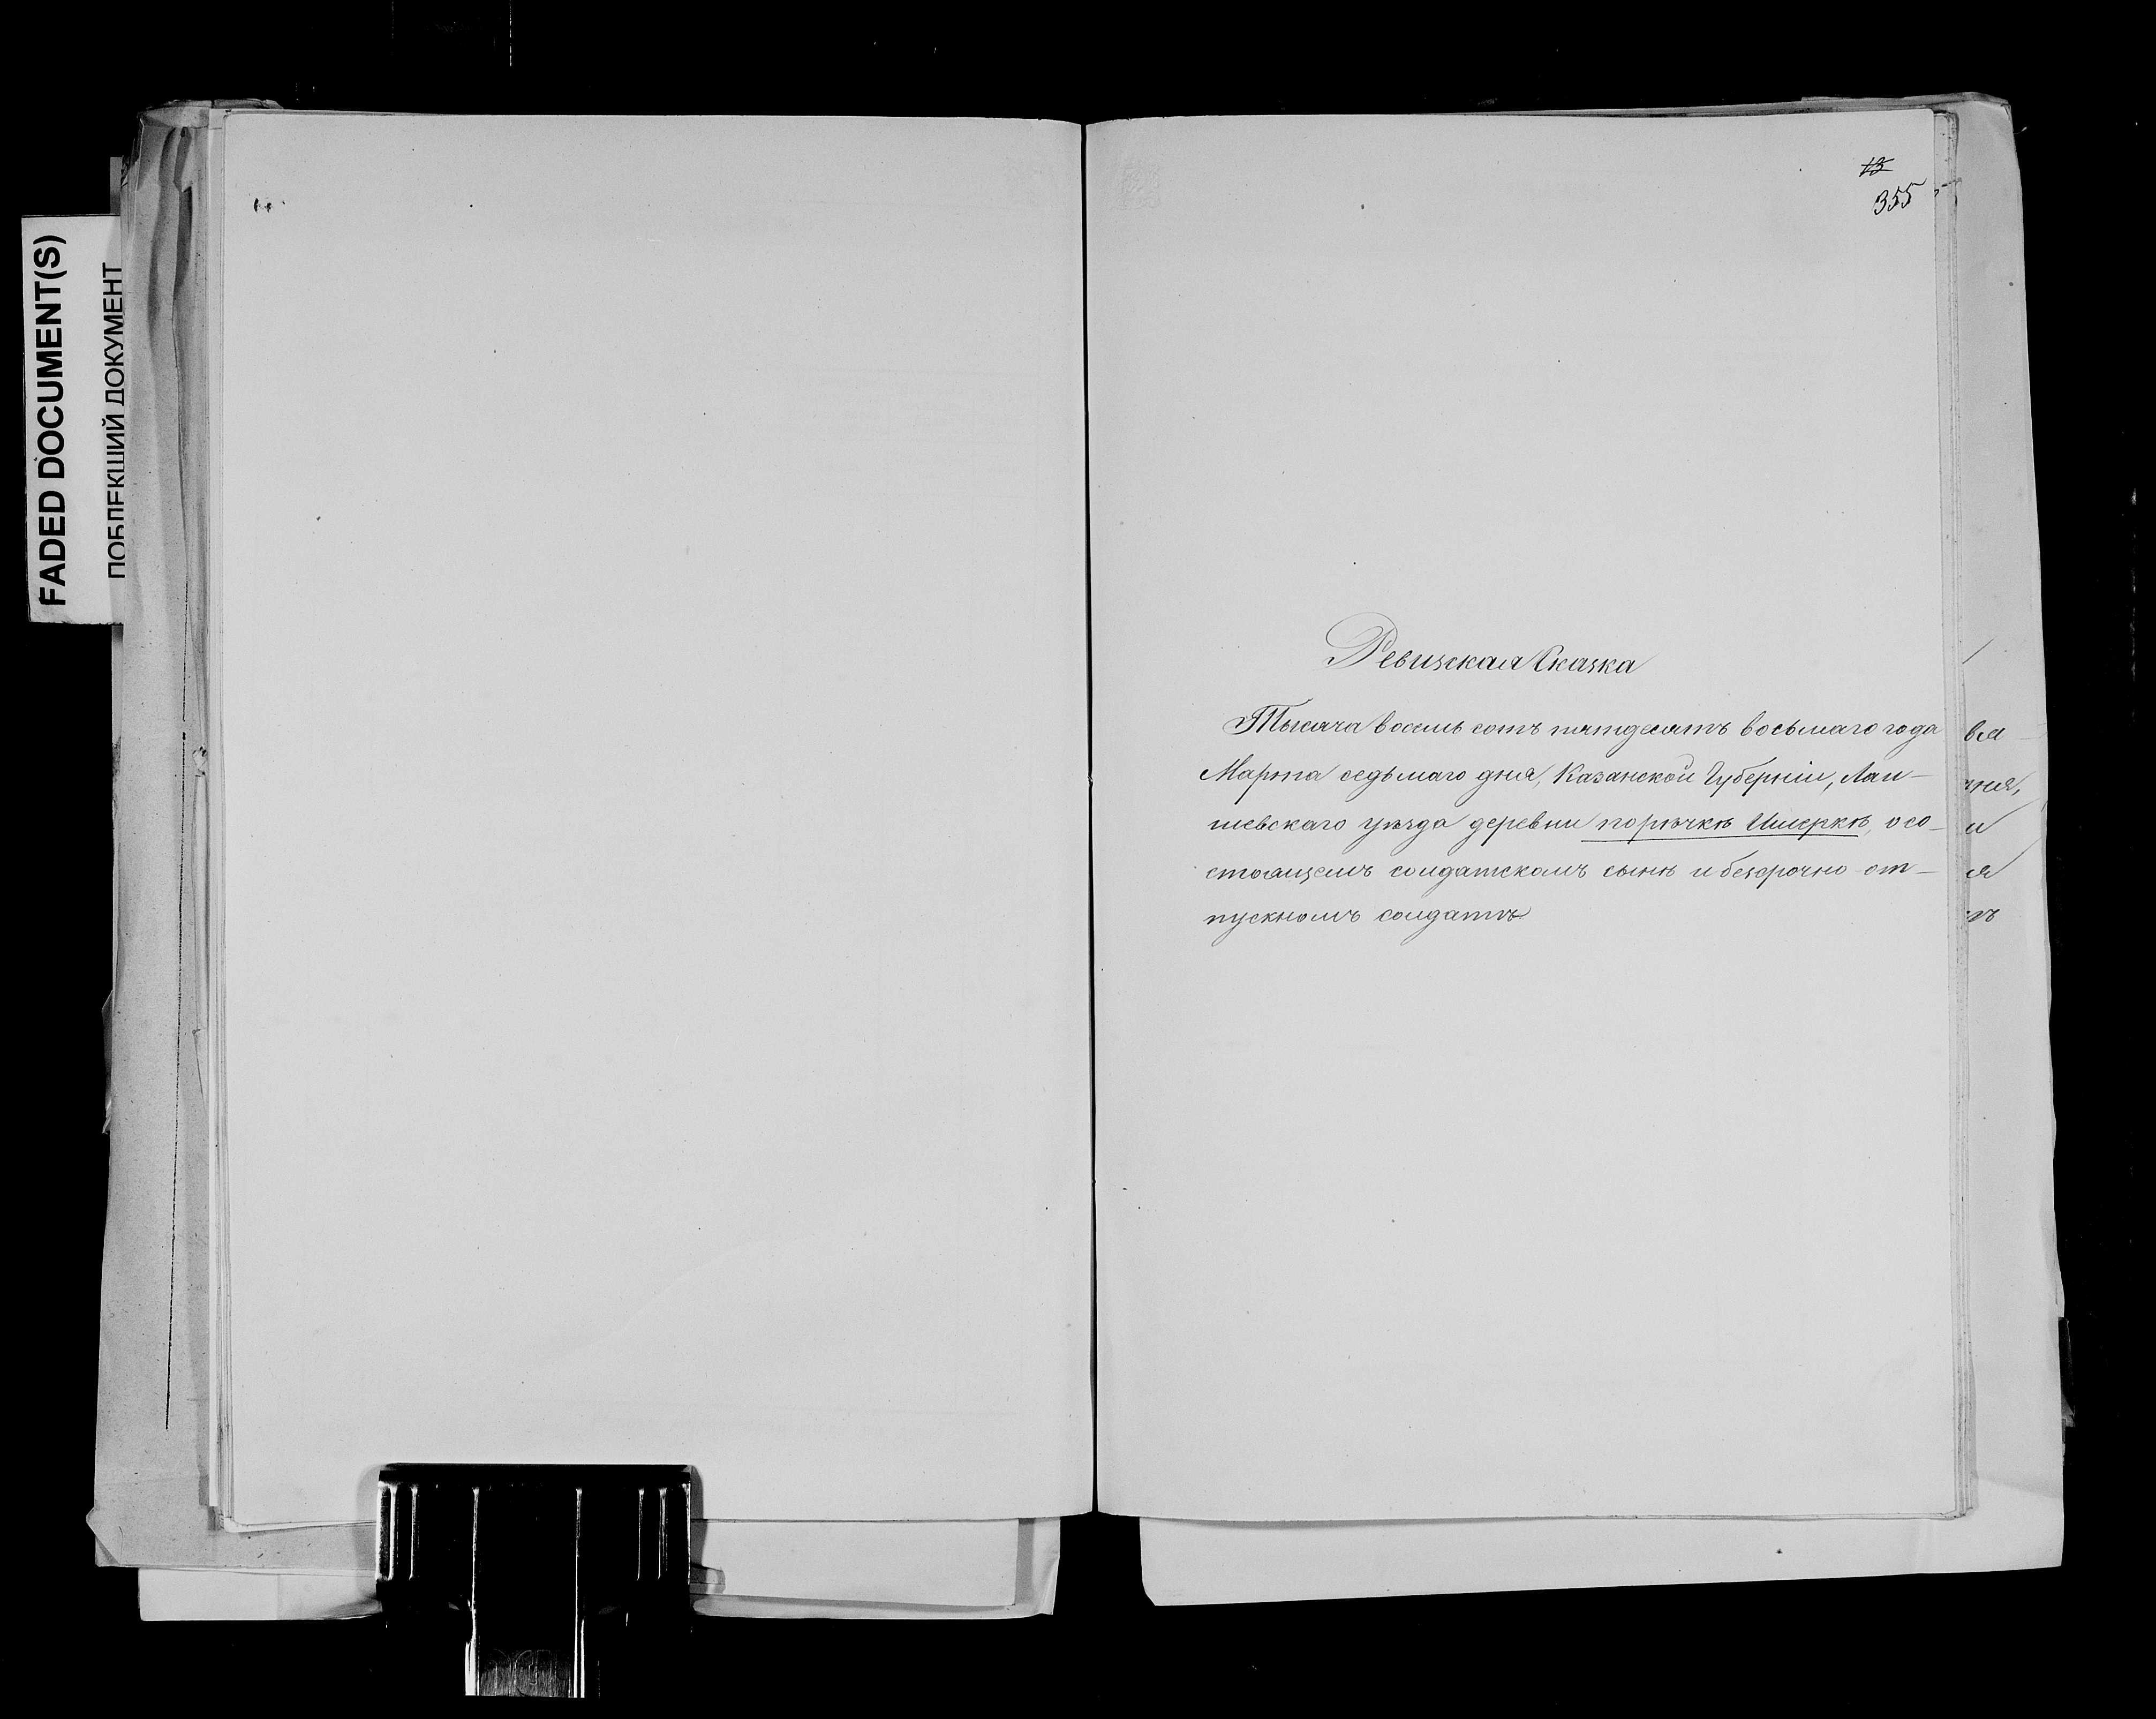 FADED DOCUMENT(S)
ПОБЛЕКШИЙ ДОКУМЕНТ
13
355
Ревизская Сказка
Тысяча восемь сотъ пятдесятъ восьмаго года
Марта седьмаго дня, Казанской Губерніи, Лаи-
шевскаго уѣзда деревни порѣчкѣ Ишеркѣ, о со-
стоящемъ солдатскомъ сынѣ и безсрочно от-
пускномъ солдатѣ